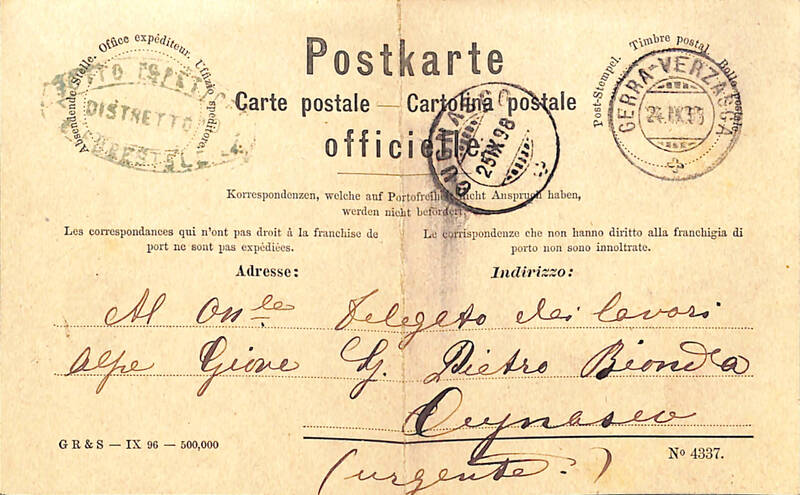 Absendende Stelle. Office expéditeur. Uffizio speditore.
DISTRETTO
Postkarte
Carte postale — Cartolina postale
officielle
CUGNASCO
25 IX 98
Post-Stempel. Timbre postal. Bollo postale.
GERRA-VERZASCA
24.IX.98
Korrespondenzen, welche auf Portofreiheit nicht Anspruch haben,
werden nicht befördert.
Les correspondances qui n'ont pas droit à la franchise de
port ne sont pas expédiées.
Le corrispondenze che non hanno diritto alla franchigia di
porto non sono innoltrate.
Adresse:
Indirizzo:
Al On.le Delegato dei lavori
alpe Giove Sg. Pietro Bionda
Cugnasco
(urgente.)
G R & S — IX 96 — 500,000
No 4337.